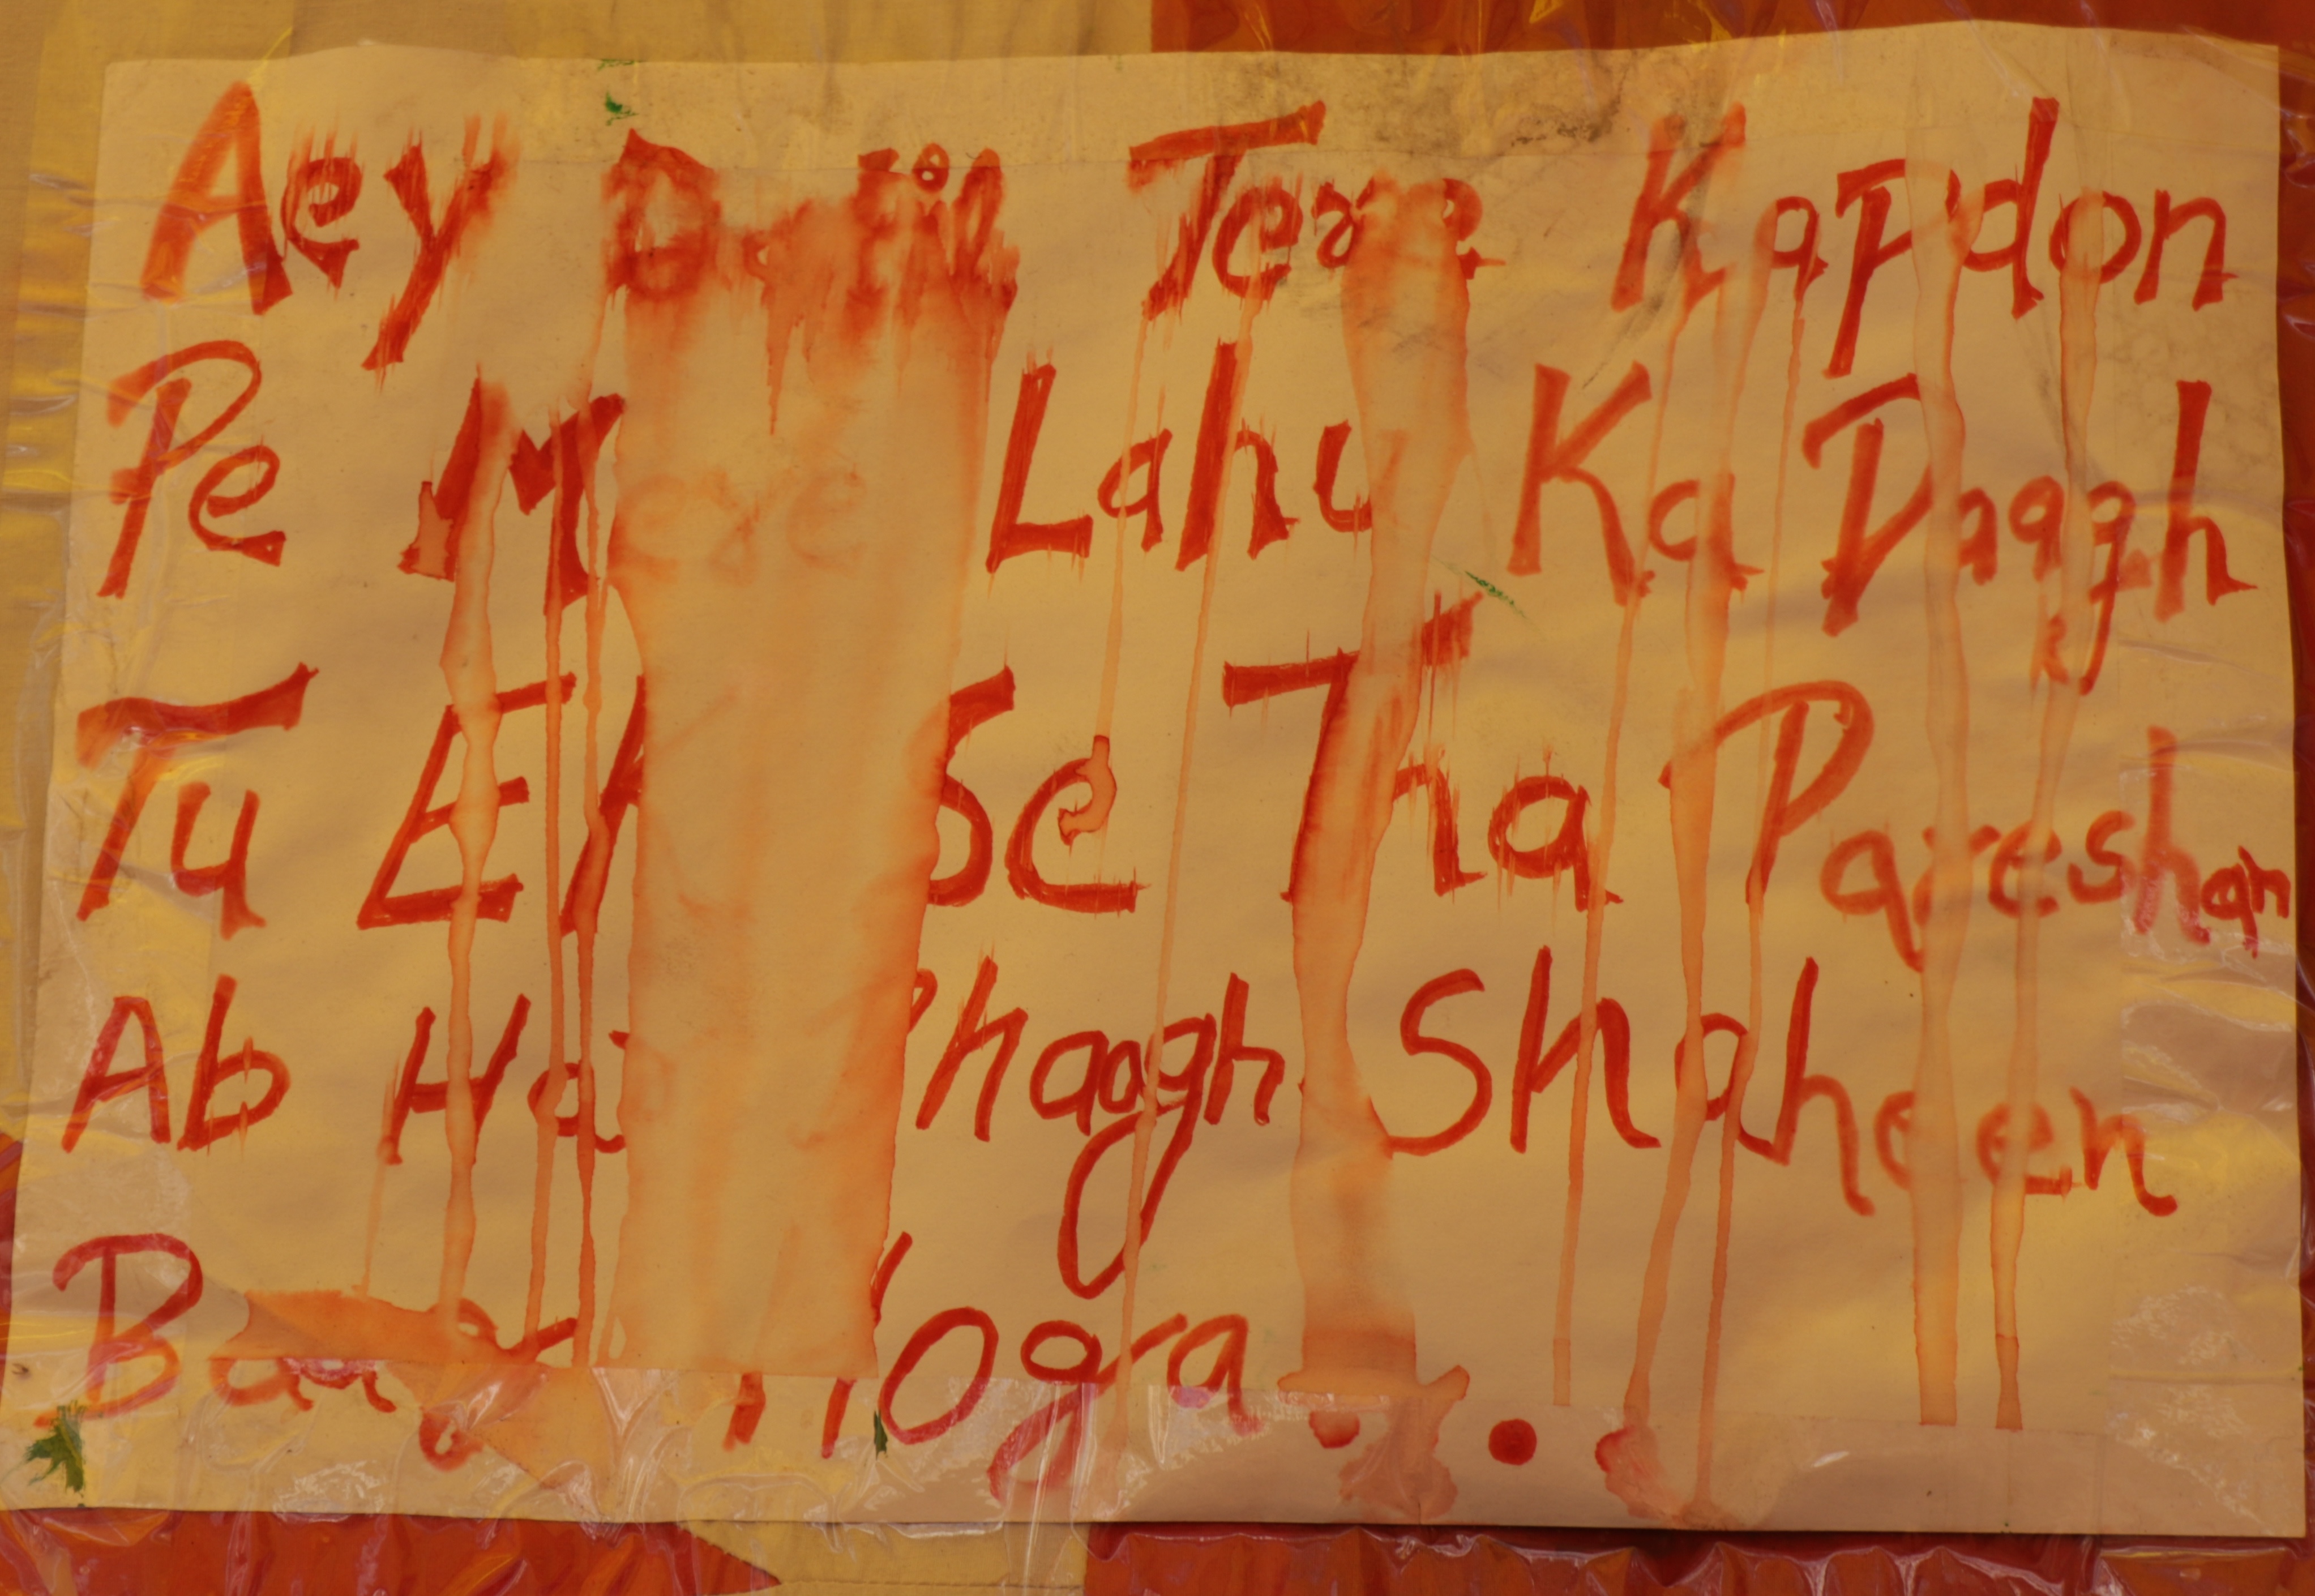 Aey Qatil Tere Kapdon
Pe Mere Lahu Ka Daagh
Tu Ek Se Tha Pareshan
Ab Har Shaheen
Hoga...